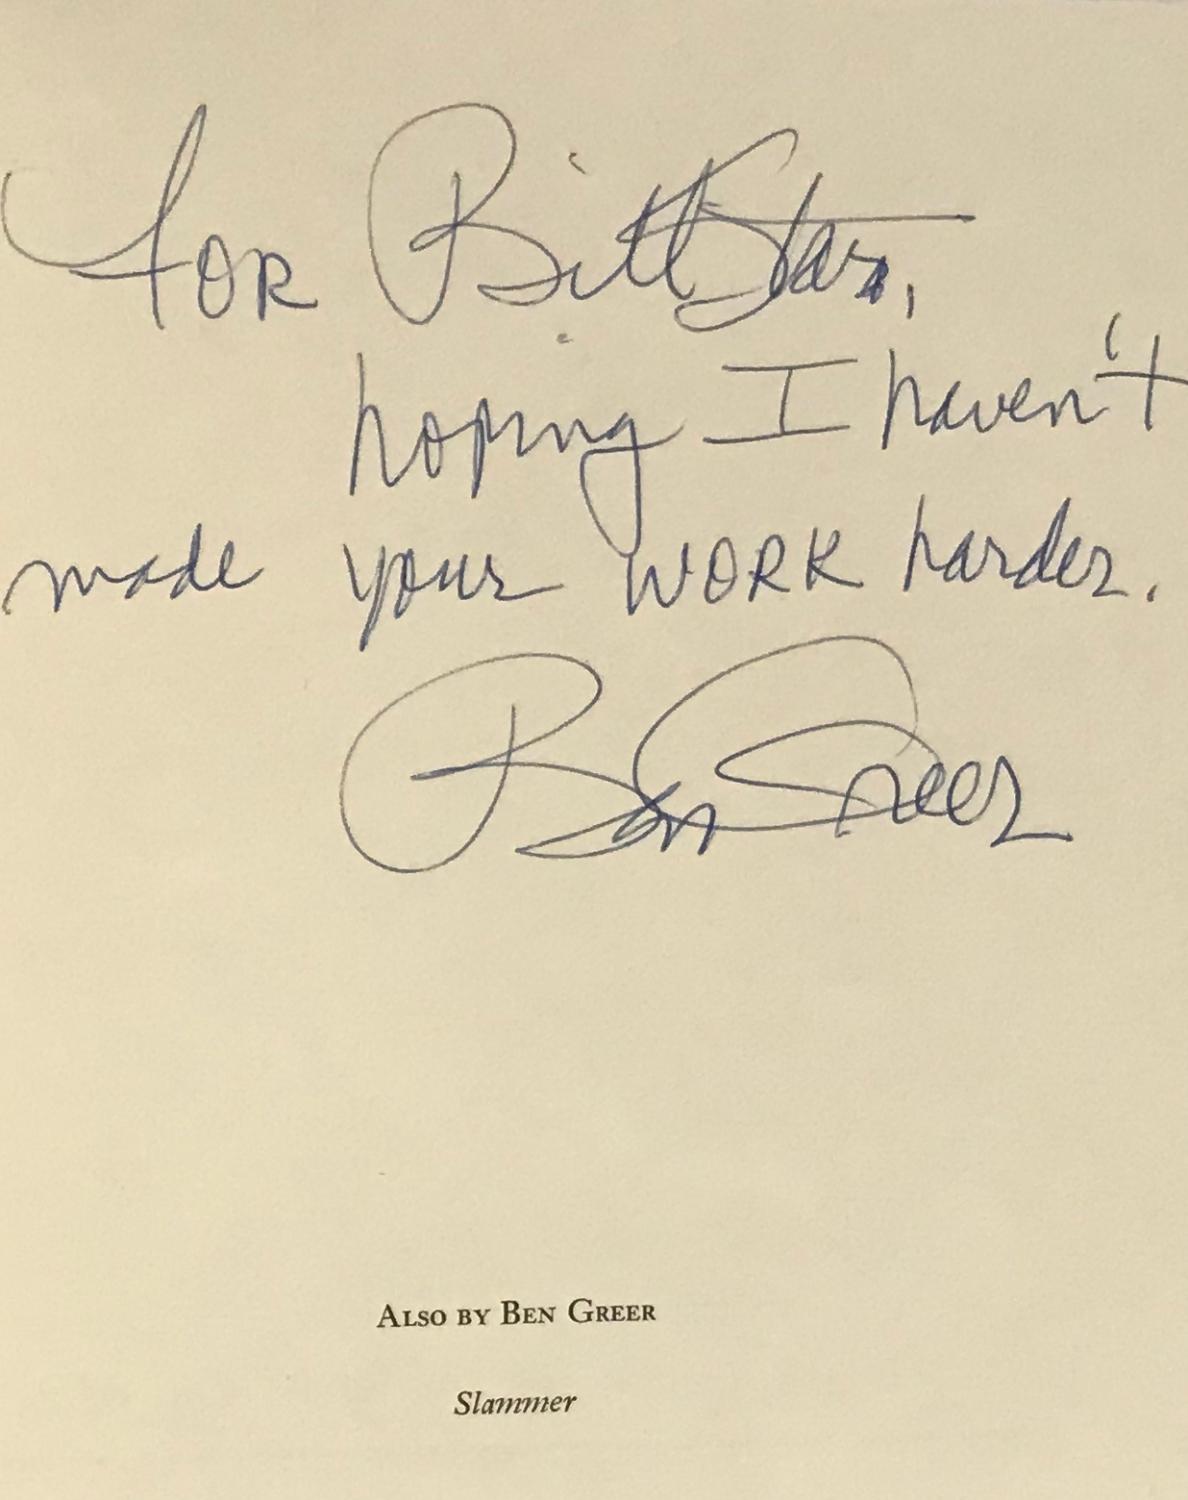 for Bill Starr,
hoping I haven't
made your WORK harder.
Ben Greer
ALSO BY BEN GREER
Slammer